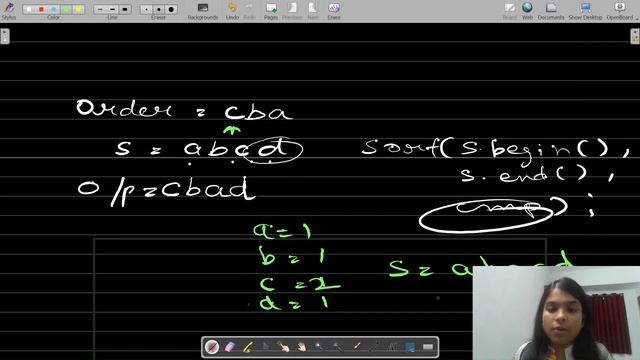 Stylus
Color
Line
Eraser
Backgrounds
Undo
Redo
Pages
Previous
Next
Erase
Board
Web
Documents
Show Desktop
OpenBoard
order = cba
s = abcd
O/p = cbad
sort( s.begin(),
s.end(),
cmp) ;
a = 1
b = 1
d = 1